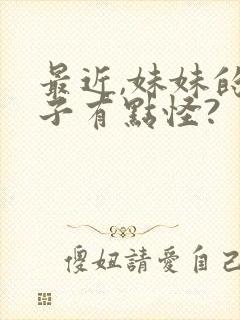 最近,妹妹的
子有點怪?
傻妞請愛自己